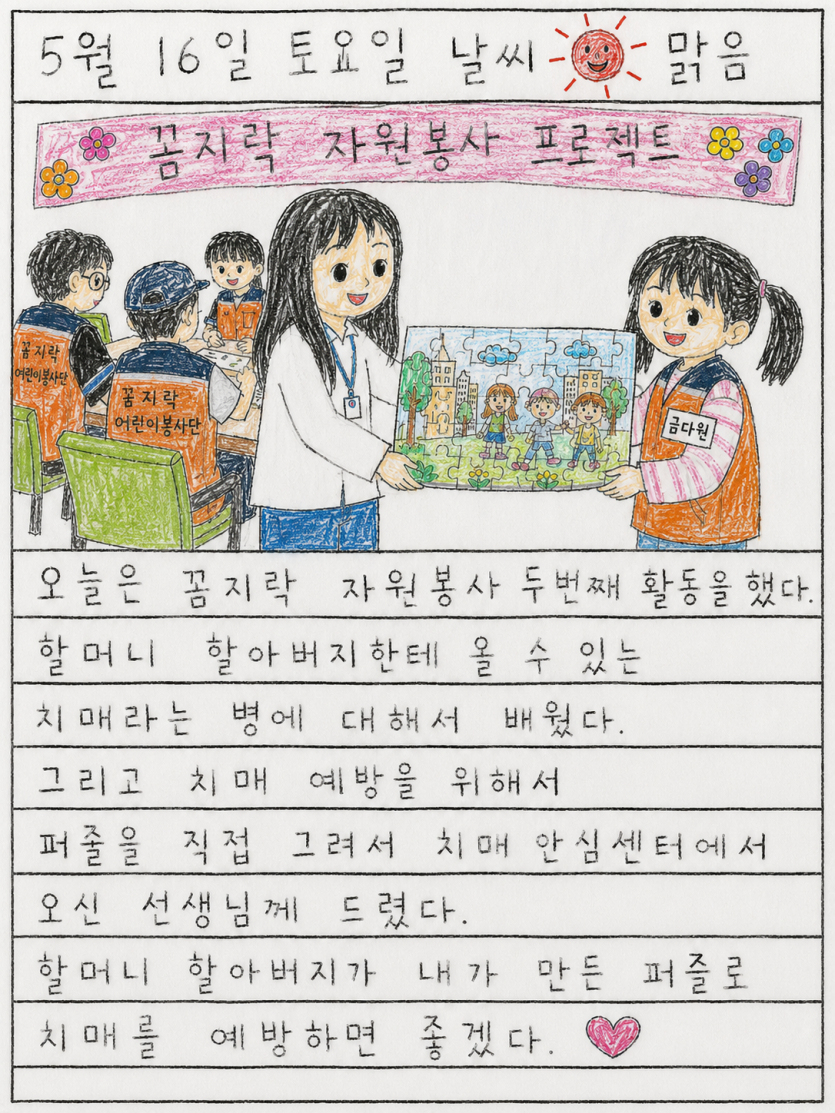 5월 16일 토요일 날씨 맑음
꼼지락 자원봉사 프로젝트
꼼지락
어린이봉사단
꼼지락
어린이봉사단
금다원
오늘은 꼼지락 자원봉사 두번째 활동을 했다.
할머니 할아버지한테 올 수 있는
치매라는 병에 대해서 배웠다.
그리고 치매 예방을 위해서
퍼즐을 직접 그려서 치매 안심센터에서
오신 선생님께 드렸다.
할머니 할아버지가 내가 만든 퍼즐로
치매를 예방하면 좋겠다.